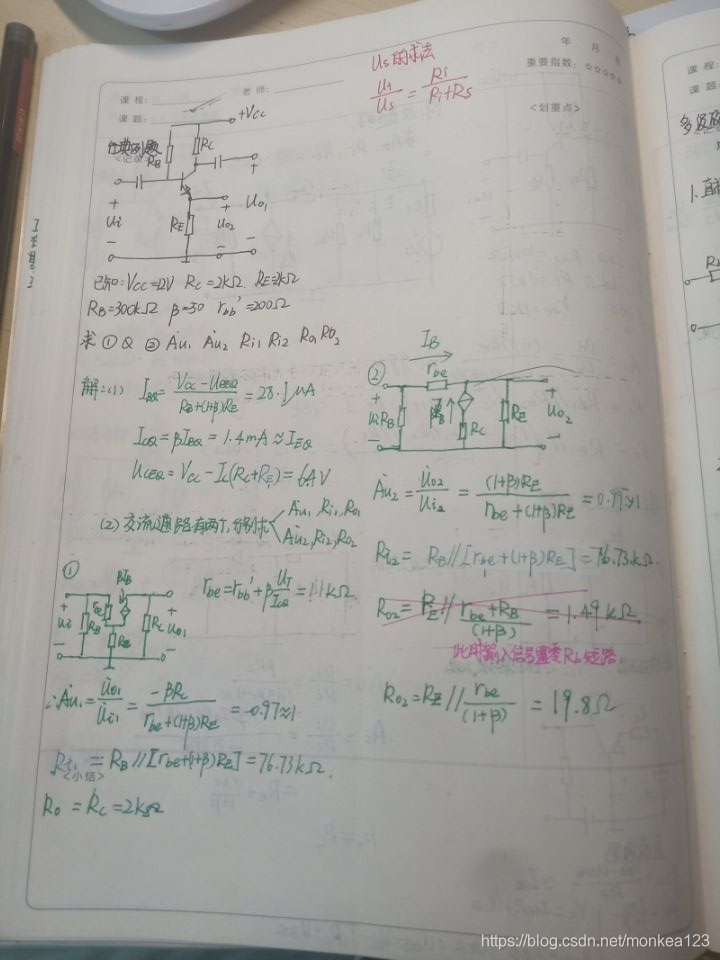 Us的求法
Ui/Us = Ri/(Ri+Rs)
年 月
重要指数：☆☆☆☆☆
课程： 老师：
课题：
<划重点>
+Vcc
RB Rc
+ Ui −
RE
+ Uo2 −
+ Uo1 −
已知：Vcc=12V Rc=2kΩ. RE=2kΩ
RB=300kΩ β=50 rbb'=200Ω
求 ① Q ② Au1 Au2 Ri1 Ri2 Ro1 Ro2
解：(1) IBQ = (Vcc−UBEQ)/(RB+(1+β)RE) = 28.1μA
ICQ=βIBQ=1.4mA≈IEQ
UCEQ=Vcc−Ic(Rc+RE)=6.4V
(2) 交流通路有两个，分别求 Au1, Ri1, Ro1
Au2, Ri2, Ro2
①
βIB
+ Ui −
rbe
RB
RE
Rc
+ Uo1 −
rbe=rbb'+β UT/ICQ = 1.1kΩ.
∴Au1 = Uo1/Ui1 = −βRc/(rbe+(1+β)RE) = −0.97≈1
Ri1 = RB//[rbe+(1+β)RE]=76.73kΩ.
<小结>
Ro = Rc=2kΩ
②
IB
rbe
+ Ui −
RB
βIB
Rc
RE
+ Uo2 −
Au2 = Uo2/Ui2 = (1+β)RE/(rbe+(1+β)RE) = 0.99≈1
Ri2= RB//[rbe+(1+β)RE]=76.73kΩ.
Ro2= RE//(rbe+RB)/(1+β) = 1.49kΩ
此时输入信号置零Rb短路.
Ro2=RE//rbe/(1+β) = 19.8Ω
课程：
课题
1.直
https://blog.csdn.net/monkea123